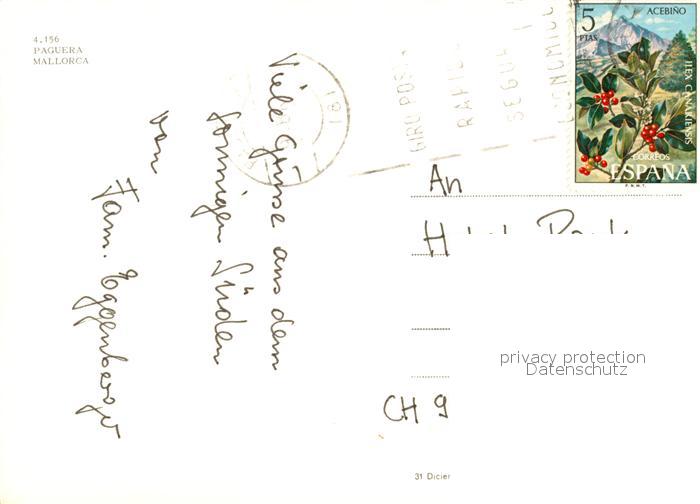 4.156
PAGUERA
MALLORCA
Viele Grüsse aus dem
sonnigen Süden
von
Fam. Eggenberger
181
GIRO POSTAL
RAPIDO
SEGURO
ECONOMICO
5
PTAS
ACEBIÑO
ILEX CANARIENSIS
CORREOS
ESPAÑA
F.N.M.T.
An
H
CH 9
privacy protection
Datenschutz
31 Dicier